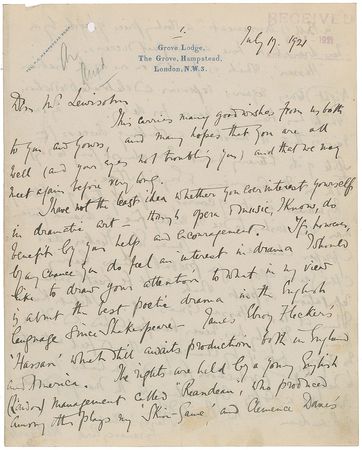 1.
RECEIVED
1921
Grove Lodge,
The Grove, Hampstead,
London, N.W.3.
July 19. 1921
Dear Mr Lewisohn
This carries many good wishes from us both
to you and yours, and many hopes that you are all
well (and your eyes not troubling you) and that we may
meet again before very long.
I have not the least idea whether you can interest yourself
in dramatic art — though opera & music, I know, do
benefit by your help and encouragement. If, however,
by any chance you do feel an interest in drama I should
like to draw your attention to what in my view
is about the best poetic drama in the English
language since Shakespeare — James Elroy Flecker's
'Hassan' which still awaits production both in England
and America. The rights are held by a young English
(London) management called "Reandean", who produced
among other plays my 'Skin-Game' and Clemence Dane's